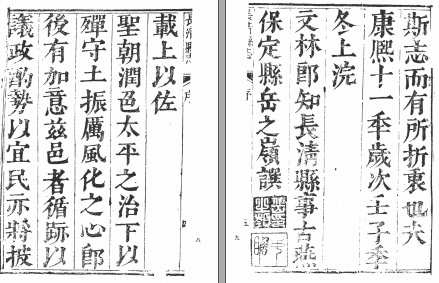 長清縣志
序
八
載上以佐
聖朝潤色太平之治下以
殫守土振厲風化之心卽
後有加意茲邑者循跡以
議政酌勢以宜民亦將披
斯志而有所折衷也夫
康熙十一季歲次壬子季
冬上浣
文林郎知長清縣事古燕
保定縣岳之嶺譔
序
九